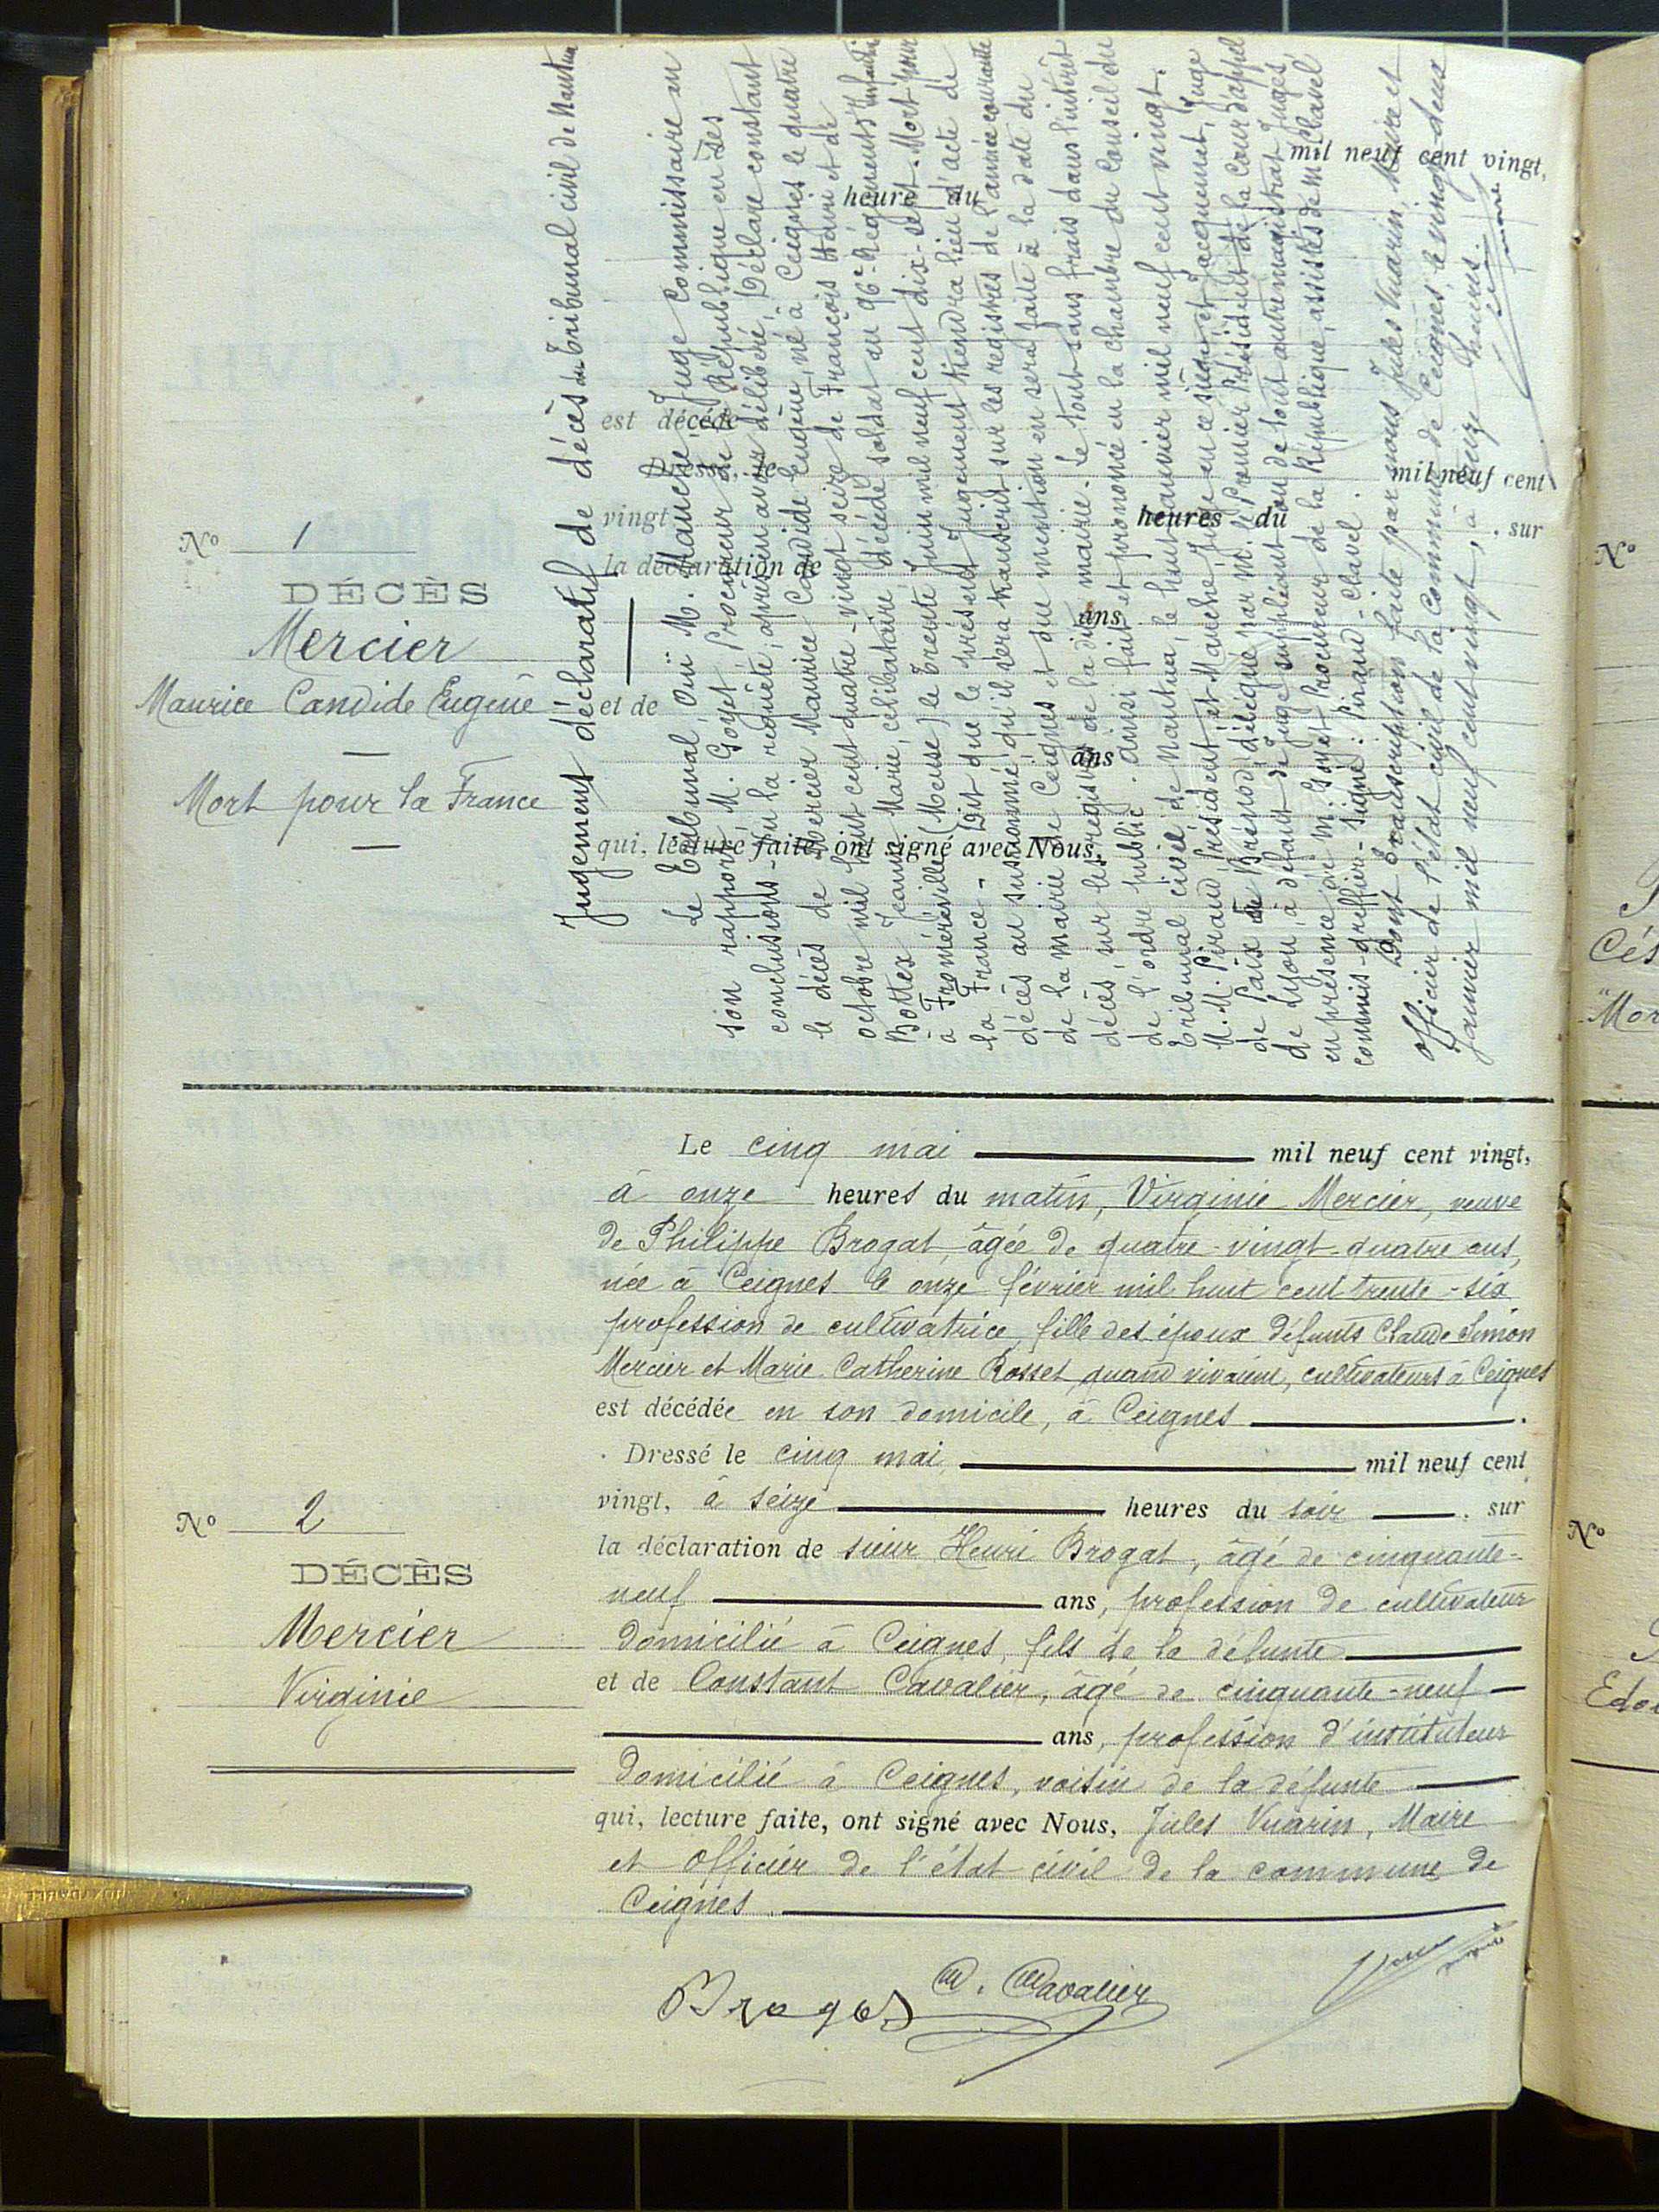 N° 1
DÉCÈS
Mercier
Maurice Candide Eugène
Mort pour la France
Jugement déclaratif de décès du Tribunal civil de Nantua
Le Tribunal, Ouï M. Mauche, Juge Commissaire en
son rapport, M. Goyet Procureur de la République en ses
conclusions - Vu la requête, après en avoir délibéré, Déclare constant
le décès de Mercier Maurice Candide Eugène, né à Ceignes le quatre
octobre mil huit cent quatre-vingt seize de François Henri et de
Bottex Jeanne Marie, célibataire, décédé soldat au 96e Régiment d'Infanterie
à Froméréville (Meuse) le trente Juin mil neuf cent dix-sept. Mort pour
la France - Dit que le présent Jugement tiendra lieu d'acte de
décès au susnommé, qu'il sera transcrit sur les registres de l'année courante
de la mairie de Ceignes et que mention en sera faite à la date du
décès, sur les registres de la dite mairie. Le tout sans frais dans l'intérêt
de l'ordre public. Ainsi fait et prononcé en la chambre du Conseil du
Tribunal civil de Nantua, le huit Janvier mil neuf cent vingt.
M.M. Piraud, Président et Mauche, Juge en ce siège et Jacquemet, Juge
de Paix de Brénod, délégué par M. le Premier Président de la Cour d'appel
de Lyon, à défaut de Juge suppléant ou de tout autre magistrat Juges,
en présence de M. Goyet Procureur de la République, assistés de M. Clavel
commis-greffier - Signé: Piraud - Clavel.
Dont transcription faite par nous Jules Vuarin, Maire et
officier de l'état civil de la commune de Ceignes, le vingt-deux
Janvier mil neuf cent vingt, à quinze heures.
mil neuf cent vingt,
heures du
est décédé
Dressé le
mil neuf cent
vingt
heures du
sur
la déclaration de
ans
et de
ans
qui, lecture faite, ont signé avec Nous,
N° 2
DÉCÈS
Mercier
Virginie
Le cinq mai mil neuf cent vingt,
à onze heures du matin, Virginie Mercier, veuve
de Philippe Brogat, âgée de quatre-vingt-quatre ans,
née à Ceignes le onze février mil huit cent trente-six
profession de cultivatrice, fille des époux défunts Claude Simon
Mercier et Marie Catherine Rosset, quand vivaient, cultivateurs à Ceignes
est décédée en son domicile, à Ceignes.
Dressé le cinq mai mil neuf cent
vingt, à seize heures du soir, sur
la déclaration de sieur Henri Brogat, âgé de cinquante-
neuf ans, profession de cultivateur
domicilié à Ceignes, fils de la défunte
et de Constant Cavalier, âgé de cinquante-neuf
ans, profession d'instituteur
domicilié à Ceignes, voisin de la défunte
qui, lecture faite, ont signé avec Nous, Jules Vuarin, Maire
et Officier de l'état civil de la commune de
Ceignes.
Brogat C. Cavalier
N°
Cés
"Mor
N°
Edou